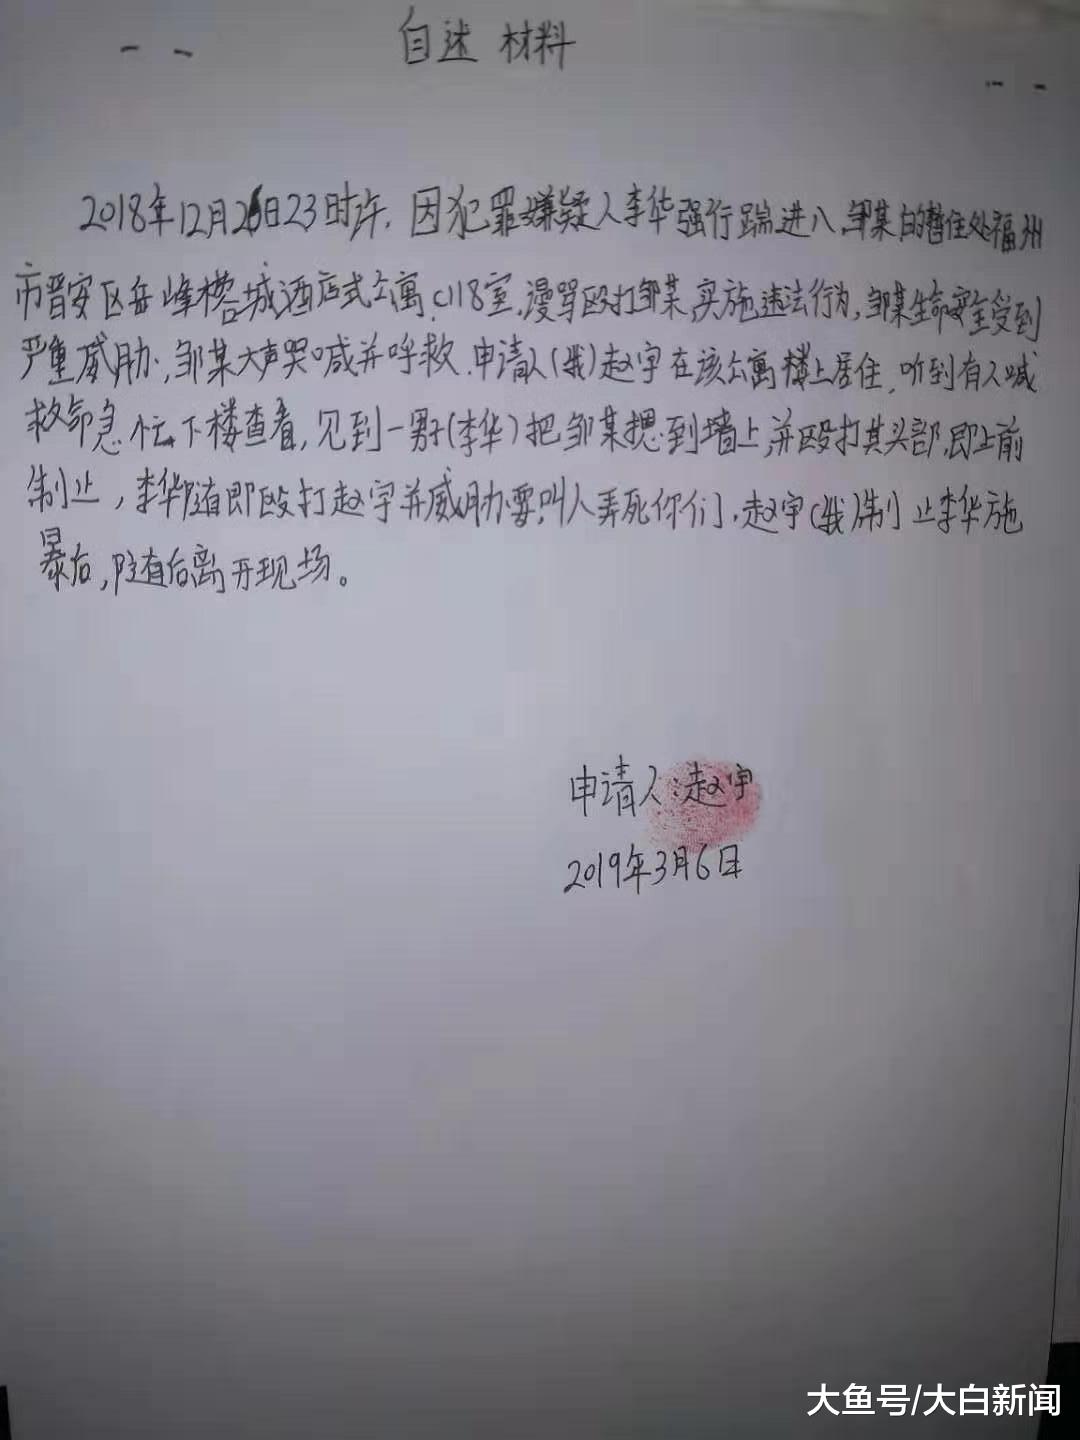 自述材料
2018年12月26日23时许,因犯罪嫌疑人李华强行踹进入邹某的暂住处福州
市晋安区岳峰榕城酒店式公寓,C118室,漫骂殴打邹某,实施违法行为,邹某生命安全受到
严重威胁,邹某大声哭喊并呼救.申请人(我)赵宇在该公寓楼上居住,听到有人喊
救命急忙下楼查看,见到一男子(李华)把邹某摁到墙上,并殴打其头部,即上前
制止,李华随即殴打赵宇并威胁要叫人弄死你们,赵宇(我)制止李华施
暴后,随后离开现场。
申请人:赵宇
2019年3月6日
大鱼号/大白新闻